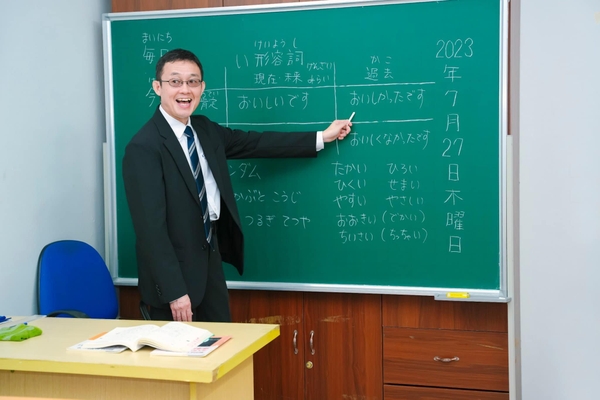 まいにち
毎
けいようし
い形容詞
げんざい
現在 未来 みらい
かこ
過去
おいしいです
おいしかったです
おいしくなかったです
ンダム
かぶと こうじ
つるぎ てつや
たかい ひろい
ひくい せまい
やすい やさしい
おおきい (でかい)
ちいさい (ちっちゃい)
2023年7月27日木曜日